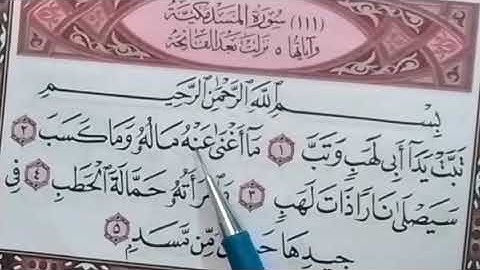 (١١١) سُورَةُ المَسَدِ مَكِّيَّة
وَآيَاتُهَا ٥ نَزَلَتْ بَعْدَ الفَاتِحَة
بِسْمِ ٱللَّهِ ٱلرَّحْمَٰنِ ٱلرَّحِيمِ
تَبَّتْ يَدَآ أَبِى لَهَبٍ وَتَبَّ ١ مَآ أَغْنَىٰ عَنْهُ مَالُهُۥ وَمَا كَسَبَ ٢
سَيَصْلَىٰ نَارًا ذَاتَ لَهَبٍ ٣ حَمَّالَةَ ٱلْحَطَبِ ٤ فِى
جِيدِهَا مِّن مَّسَدٍ ٥